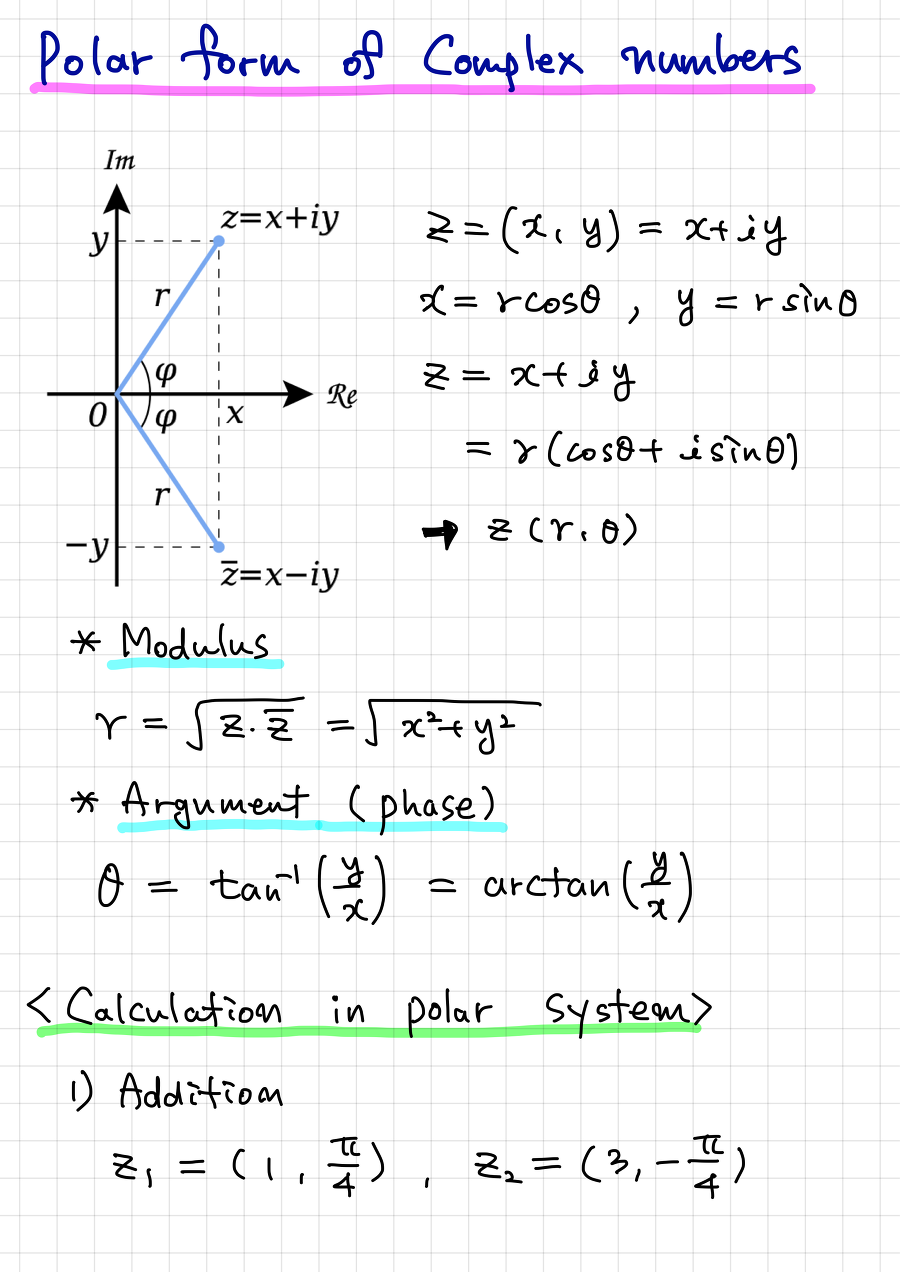 Polar form of Complex numbers
Im
z=x+iy
y
r
φ
Re
0
φ
x
r
−y
z̅=x−iy
z = (x, y) = x+iy
x = rcosθ , y = r sinθ
z = x+iy
= r(cosθ+ i sinθ)
➡ z (r, θ)
* Modulus
r = √(z·z̅) = √(x²+y²)
* Argument (phase)
θ = tan⁻¹(y/x) = arctan(y/x)
<Calculation in polar system>
1) Addition
z₁ = (1, π/4) , z₂ = (3, -π/4)